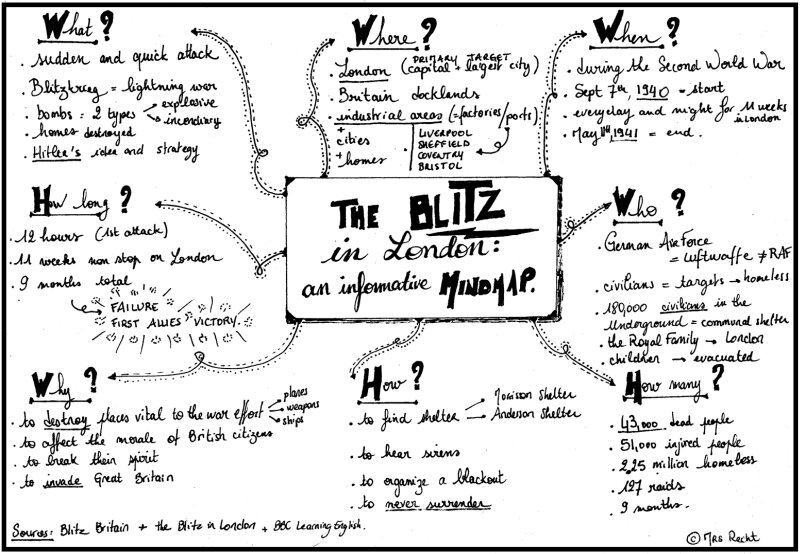 What?
. sudden and quick attack
. Blitzkrieg = lightning war
. bombs = 2 types
explosive
incendiary
. homes destroyed
. Hitler's idea and strategy
Where?
PRIMARY TARGET
. London (capital + largest city)
. Britain docklands
. industrial areas (=factories/ports)
+ cities
+ homes
LIVERPOOL
SHEFFIELD
COVENTRY
BRISTOL
When?
. during the Second World War
. Sept 7th, 1940 = start
. everyday and night for 11 weeks
in London
. May 11th, 1941 = end.
How long?
. 12 hours (1st attack)
. 11 weeks non stop on London
. 9 months total
FAILURE
FIRST ALLIES VICTORY.
THE BLITZ
in London:
an informative MINDMAP.
Who?
. German Air Force
= Luftwaffe ≠ RAF
. civilians = targets → homeless
. 180,000 civilians in the
Underground = communal shelter
. the Royal Family → London
. children → evacuated
Why?
. to destroy places vital to the war effort
planes
weapons
ships
. to affect the morale of British citizens
. to break their spirit
. to invade Great Britain
How?
. to find shelter
Morrison Shelter
Anderson Shelter
. to hear sirens
. to organize a blackout
. to never surrender
How many?
. 43,000 dead people
. 51,000 injured people
. 2,25 million homeless
. 127 raids
. 9 months.
Sources: Blitz Britain + the Blitz in London + BBC Learning English.
© Mrs Recht